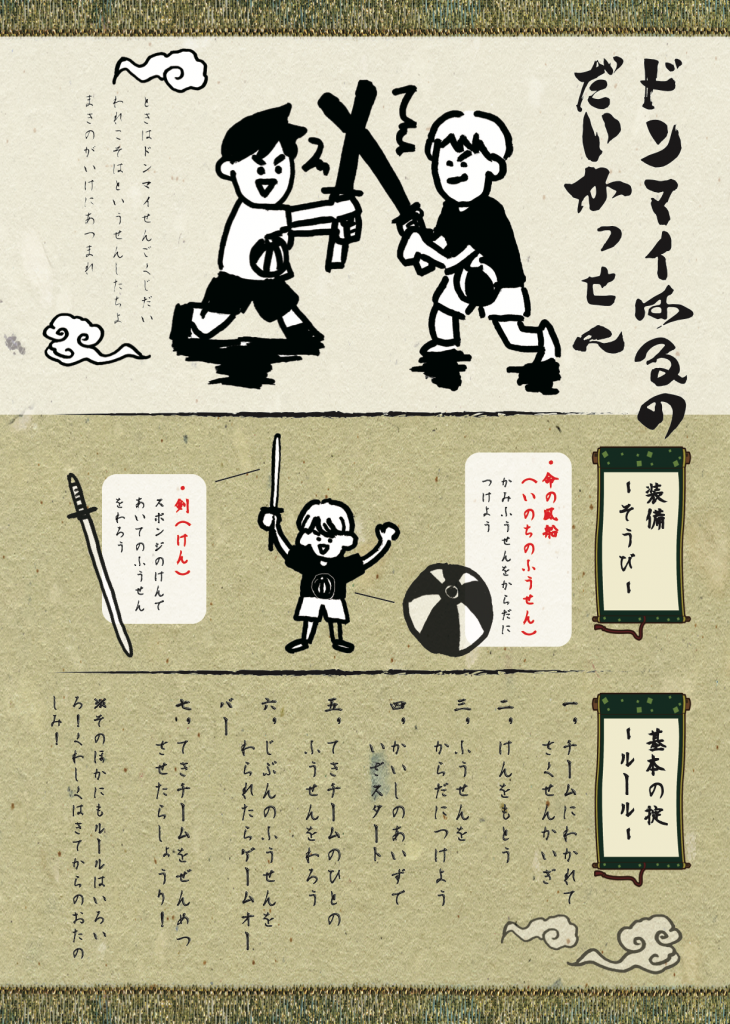 ドンマイはるの
だいかっせん
てら
ス
ときはドンマイせんごくじだい
われこそはというせんしたちよ
まきのがいけにあつまれ
装備
〜そうび〜
・命の風船
(いのちのふうせん)
かみふうせんをからだに
つけよう
・剣(けん)
スポンジのけんで
あいてのふうせん
をわろう
基本の掟
〜ルール〜
一，チームにわかれて
さくせんかいぎ
二，けんをもとう
三，ふうせんを
からだにつけよう
四，かいしのあいずで
いざスタート
五，てきチームのひとの
ふうせんをわろう
六，じぶんのふうせんを
わられたらゲームオー
バー
七，てきチームをぜんめつ
させたらしょうり！
※そのほかにもルールはいろい
ろ！くわしくはきてからのおたの
しみ！